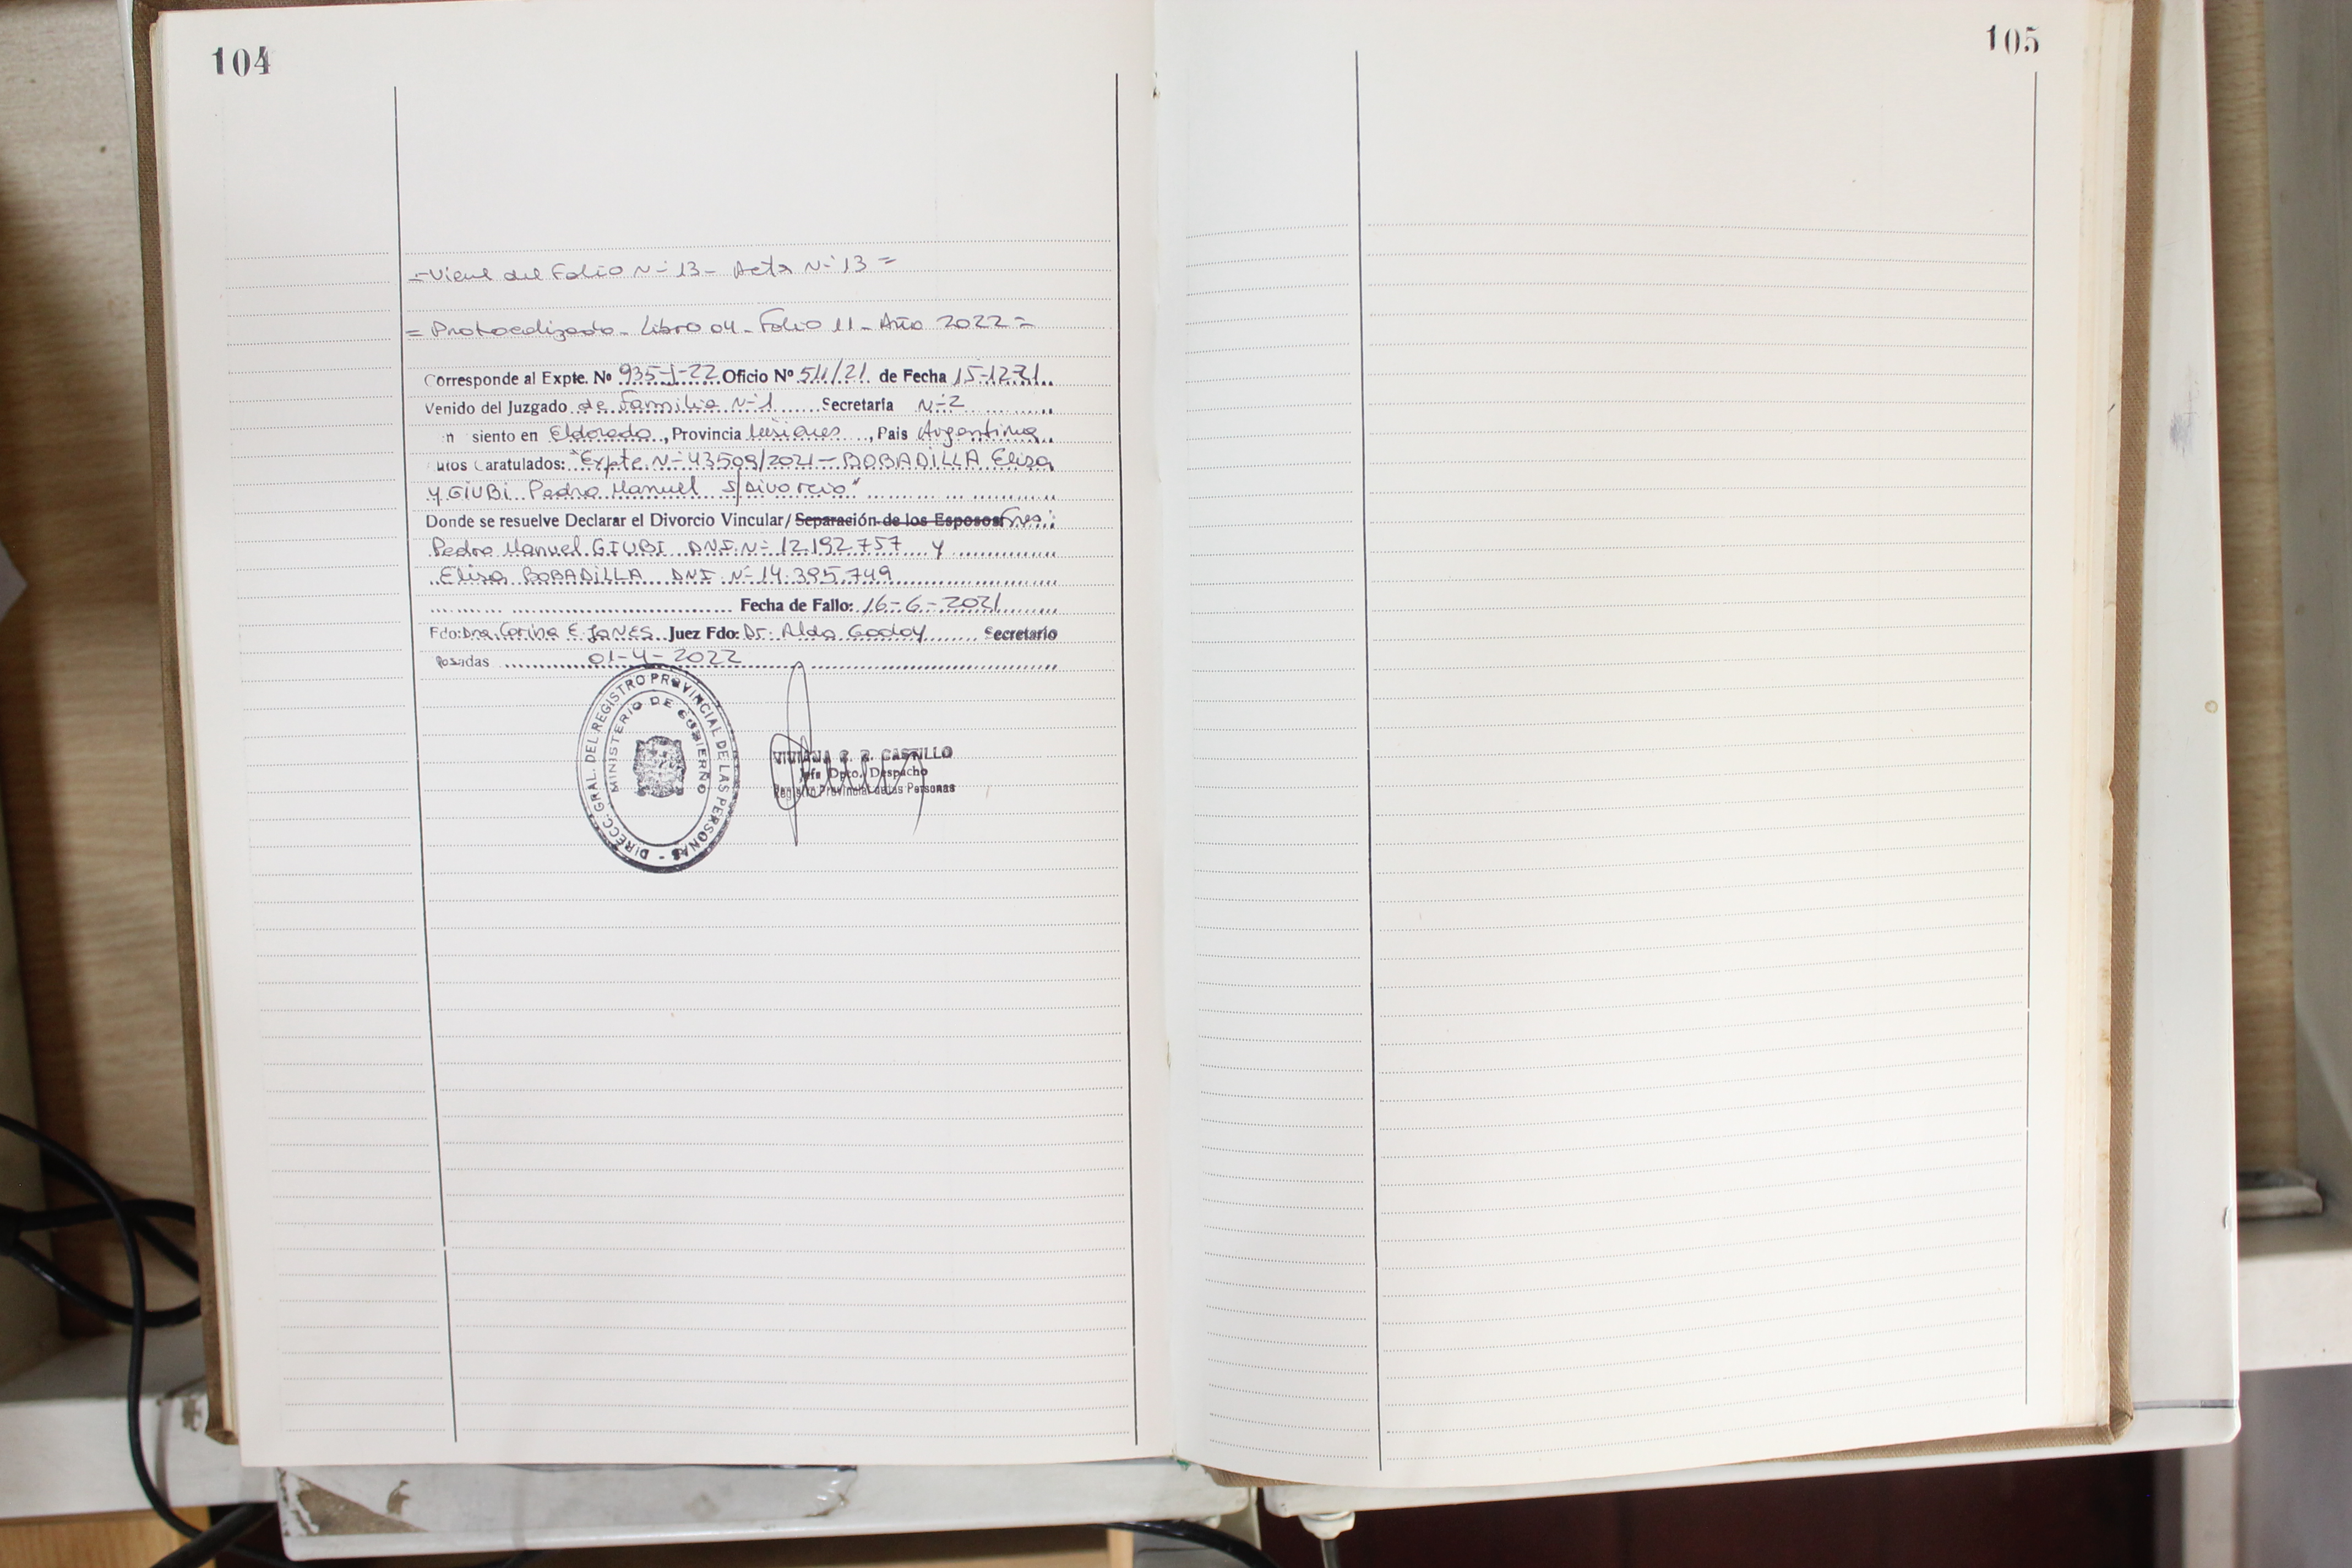 104
=Viene del Folio Nº 13- Acta Nº 13=
= Protocolizado- Libro 04- Folio 11- Año 2022=
Corresponde al Expte. Nº 935-J-22 Oficio Nº 511/21 de Fecha 15-12-21
Venido del Juzgado de Familia Nº 1 Secretaría Nº 2
n siento en Eldorado, Provincia Misiones, País Argentina
utos Caratulados: "Expte. Nº 43509/2021- BOBADILLA Elisa
y GIUBI Pedro Manuel s/Divorcio"
Donde se resuelve Declarar el Divorcio Vincular/Separación de los Esposos
Pedro Manuel GIUBI DNI Nº 12.192.757 y
Elisa BOBADILLA DNI Nº 14.395.749
Fecha de Fallo: 16-6-2021
Fdo: Dra. Corina E. JONES Juez Fdo: Dr. Aldo Godoy Secretario
Posadas 01-4-2022
DIRECC. GRAL. DEL REGISTRO PROVINCIAL DE LAS PERSONAS -
MINISTERIO DE GOBIERNO
VIVIANA CASTILLO
Jefa Dpto. Despacho
Registro Provincial de las Personas
105